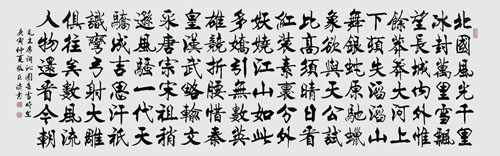 北國風光千里
冰封萬里雪飄
望長城內外惟
餘莽莽大河上
下頓失滔滔山
舞銀蛇原馳蠟
象欲與天公試
比高須晴日看
紅裝素裹分外
妖嬈江山如此
多嬌引無數英
雄競折腰惜秦
皇漢武略輸文
采唐宗宋祖稍
遜風騷一代天
驕成吉思汗祇
識彎弓射大雕
俱往矣數風流
人物還看今朝
毛主席詞沁園春雪時在
庚寅仲夏